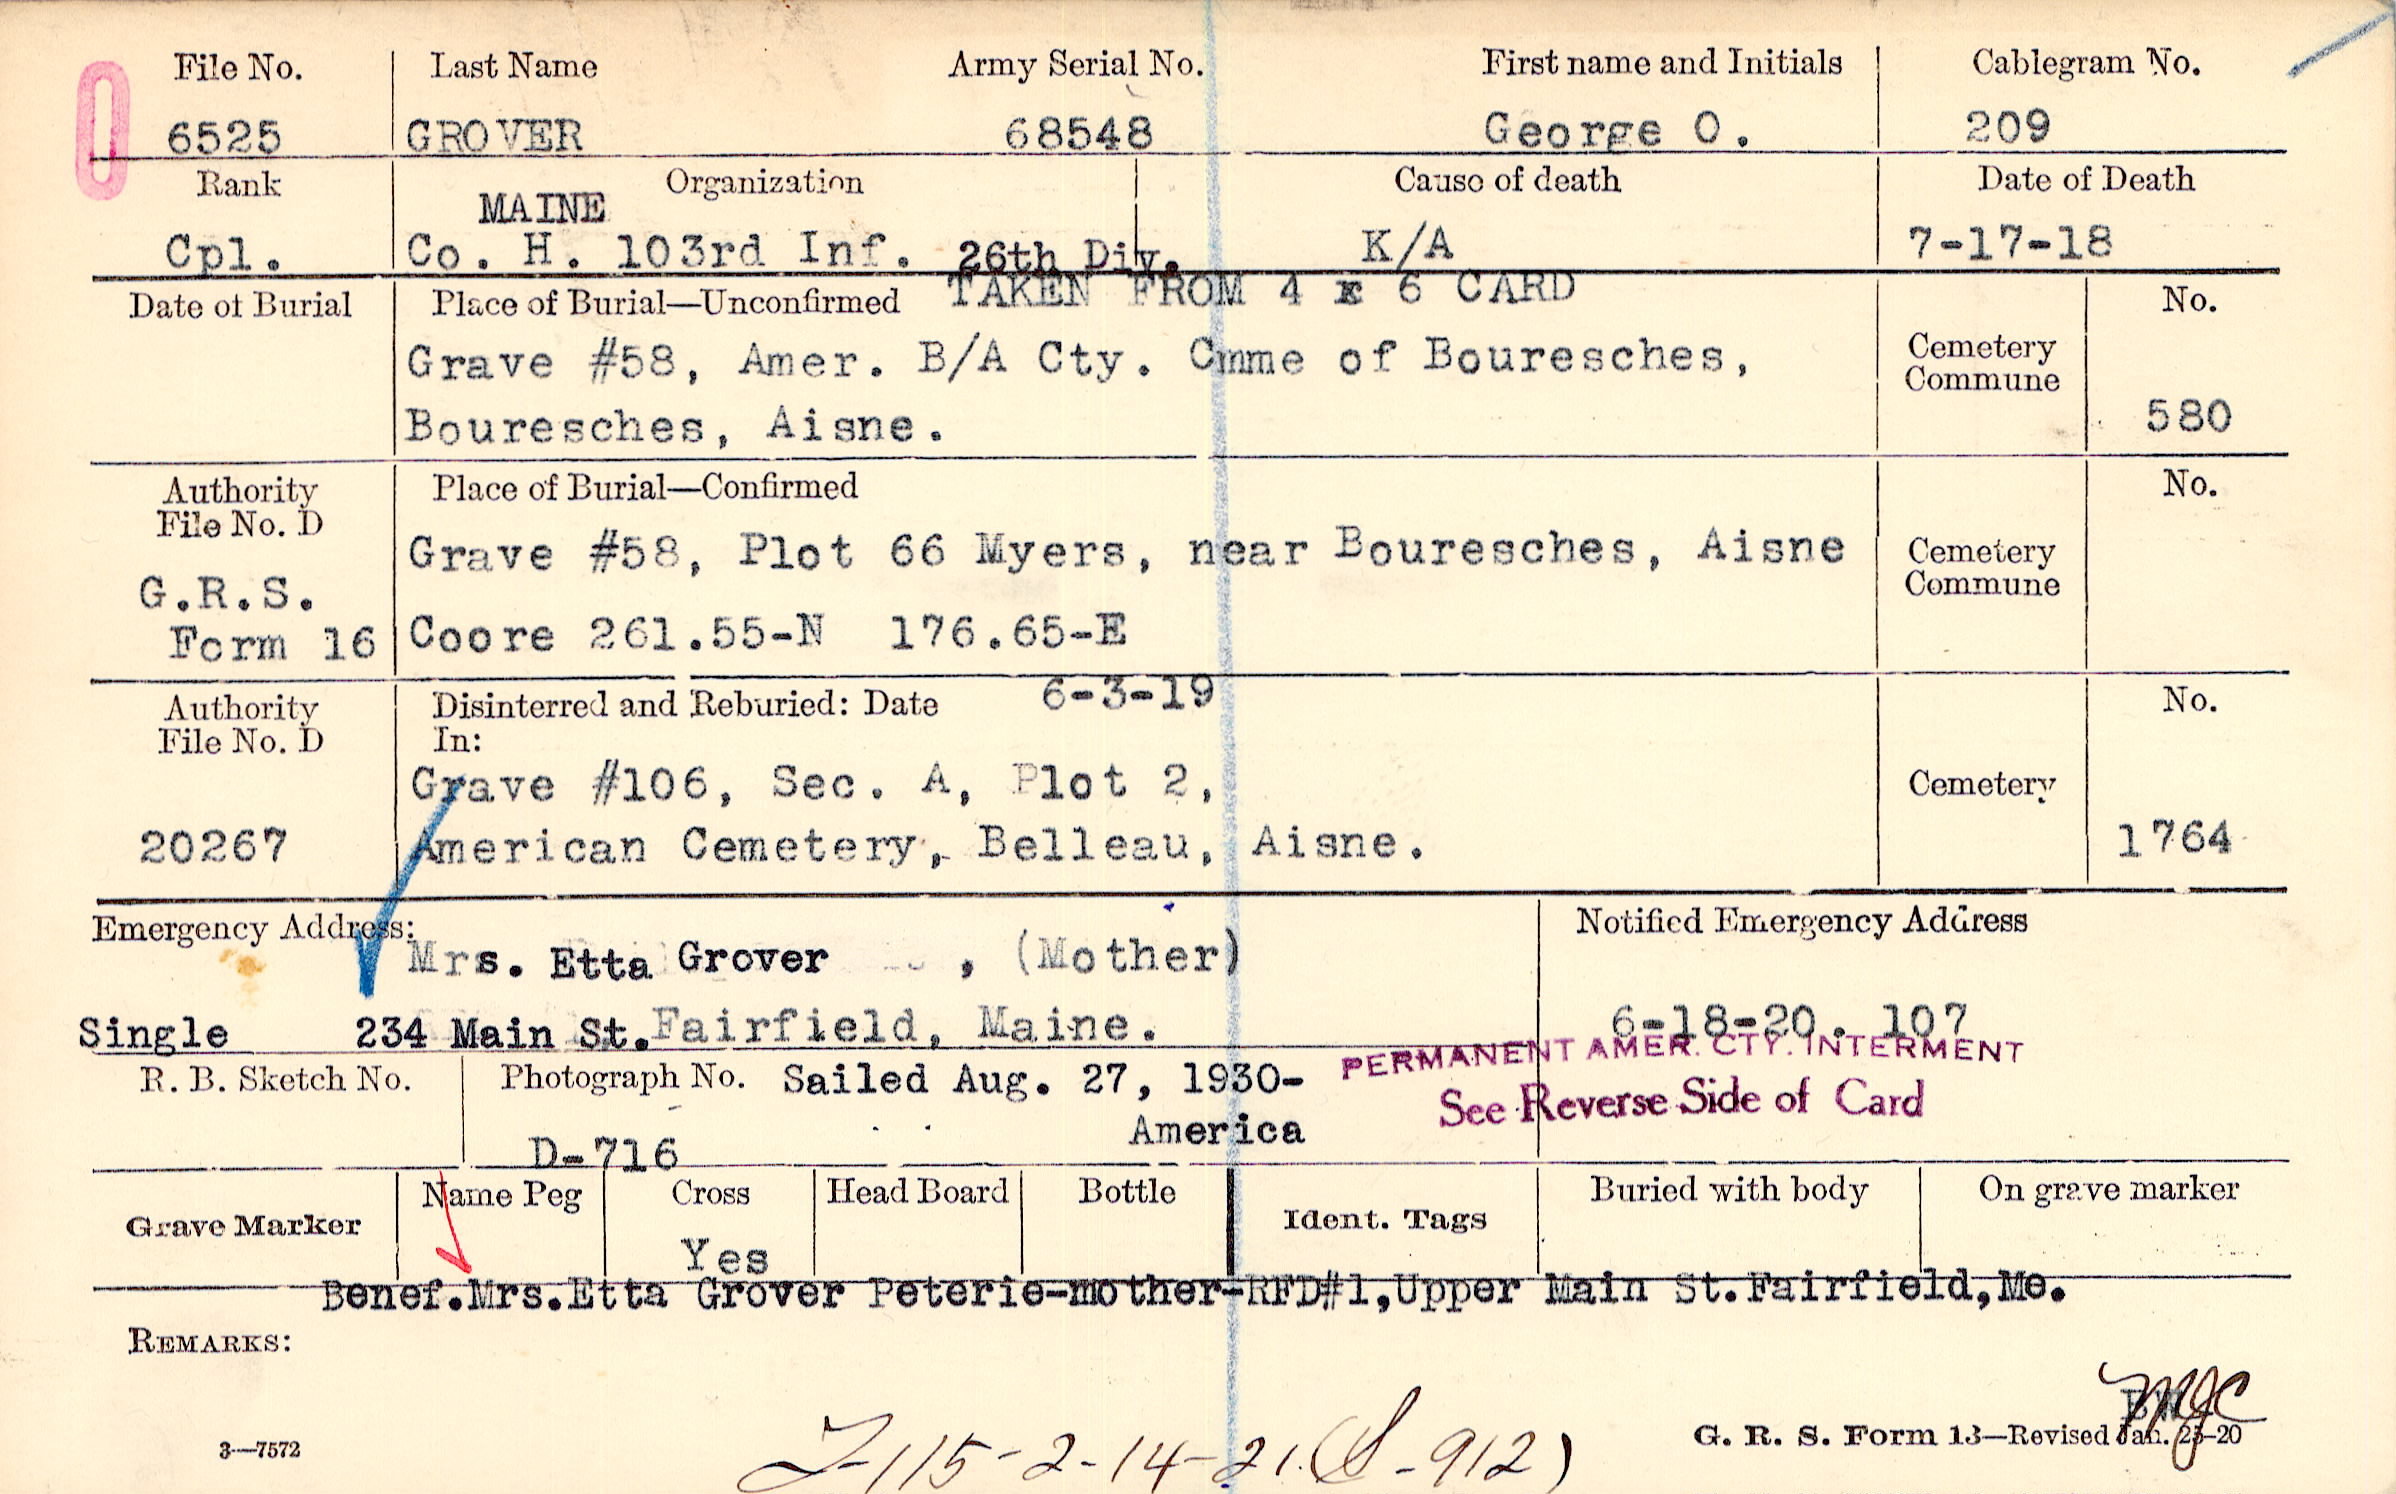 File No. Last Name Army Serial No. First name and Initials Cablegram No.
6525 GROVER 68548 George O. 209
Rank Organization Cause of death Date of Death
MAINE
Cpl. Co. H. 103rd Inf. 26th Div. K/A 7-17-18
TAKEN FROM 4 x 6 CARD
Date of Burial Place of Burial—Unconfirmed No.
Grave #58, Amer. B/A Cty. Cmme of Bouresches, Cemetery
Commune
Bouresches, Aisne. 580
Authority Place of Burial—Confirmed No.
File No. D
Grave #58, Plot 66 Myers, near Bouresches, Aisne Cemetery
G.R.S. Commune
Form 16 Coore 261.55-N 176.65-E
Authority Disinterred and Reburied: Date 6-3-19 No.
File No. D In:
Grave #106, Sec. A, Plot 2, Cemetery
20267 American Cemetery, Belleau, Aisne. 1764
Emergency Address: Notified Emergency Address
Mrs. Etta Grover , (Mother)
Single 234 Main St. Fairfield, Maine. 6-18-20. 107
PERMANENT AMER. CTY. INTERMENT
R. B. Sketch No. Photograph No. Sailed Aug. 27, 1930-
See Reverse Side of Card
America
D-716
Grave Marker Name Peg Cross Head Board Bottle Ident. Tags Buried with body On grave marker
Yes
Benef.Mrs.Etta Grover Peterie-mother-RFD#1,Upper Main St.Fairfield,Me.
REMARKS:
G. R. S. Form 13—Revised Jan. 23-20
3—7572
-115-2-14-21.(S-912)